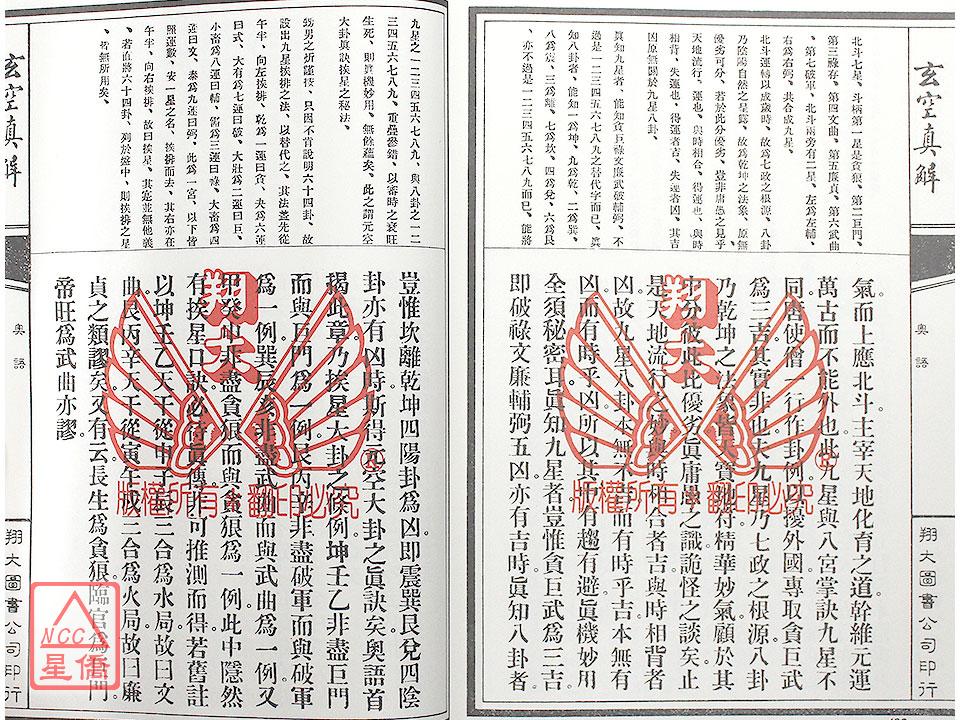 玄空真解
奧語
翔大圖書公司印行
北斗七星、斗柄第一星是貪狼、第二巨門、
第三祿存、第四文曲、第五廉貞、第六武曲
、第七破軍、北斗兩旁有二星、左為左輔、
右為右弼、共合成九星。
北斗運轉以成歲時、故為七政之根源、八卦
乃陰陽自然之星露、故為乾坤之法象、原無
優劣可分、若於此分優劣、豈非庸愚之見乎
天地流行、運也、與時相合、得運也、與時
相背、失運也、得運者吉、失運者凶、其吉
凶原無關於九星八卦、
眞知九星者、能知貪巨祿文廉武破輔弼、不
過是一二三四五六七八九之替代字而已、眞
知八卦者、能知一為坤、九為乾、二為巽、
八為震、三為離、七為坎、四為兌、六為艮
、亦不過是一二三四五六七八九而已、能將
氣而上應北斗主宰天地化育之道幹維元運
萬古而不能外也此九星與八宮掌訣九星不
同唐使僧一行作卦例以擾外國專取貪巨武
為三吉其實非也夫九星乃七政之根源八卦
乃乾坤之法象皆天寶地符精華妙氣顧於其
中分彼此此優劣眞庸愚之識詭怪之談矣止
是天地流行之妙與時相合者吉與時相背者
凶故九星八卦本無不吉而有時乎吉本無有
凶而有時乎凶所以其中有趨有避眞機妙用
全須秘密耳眞知九星者豈惟貪巨武為三吉
即破祿文廉輔弼五凶亦有吉時眞知八卦者
九星之一二三四五六七八九、與八卦之一二
三四五六七八九、重疊參錯、以審時之衰旺
生死、即眞機妙用、無餘蘊矣、此之謂元空
大卦眞訣挨星之秘法、
設出九星挨排之法、以替代之、其法盡先從
午半、向左挨排、乾為一運曰貪、夬為六運
曰武、大有為七運曰破、大壯為二運曰巨、
小畜為八運曰輔、需為三運曰祿、大畜為四
運曰文、泰為九運曰弼、此為一宮、以下皆
午半、向右挨排、故曰挨星、其定並無他義
、若直將六十四卦、列於盤中、則挨排之星
、皆無所用矣、
豈惟坎離乾坤四陽卦為凶即震巽艮兌四陰
卦亦有凶時斯得元空大卦之眞訣矣奧語首
揭此章乃挨星大卦之條例坤壬乙非盡巨門
而與巨門為一例艮丙辛非盡破軍而與破軍
為一例巽辰亥非盡武曲而與武曲為一例
甲癸申非盡貪狼而與貪狼為一例此中隱然
有挨星口訣必待眞傳非可推測而得若舊註
以坤壬乙天干從申子辰三合為水局故曰文
曲艮丙辛天干從寅午戌三合為火局故曰廉
貞之類謬矣又有云長生為貪狼臨官為巨門
帝旺為武曲亦謬
玄空真解
奧語
翔大圖書公司印行
翔大
版權所有
翻印必究
NCC
星僑